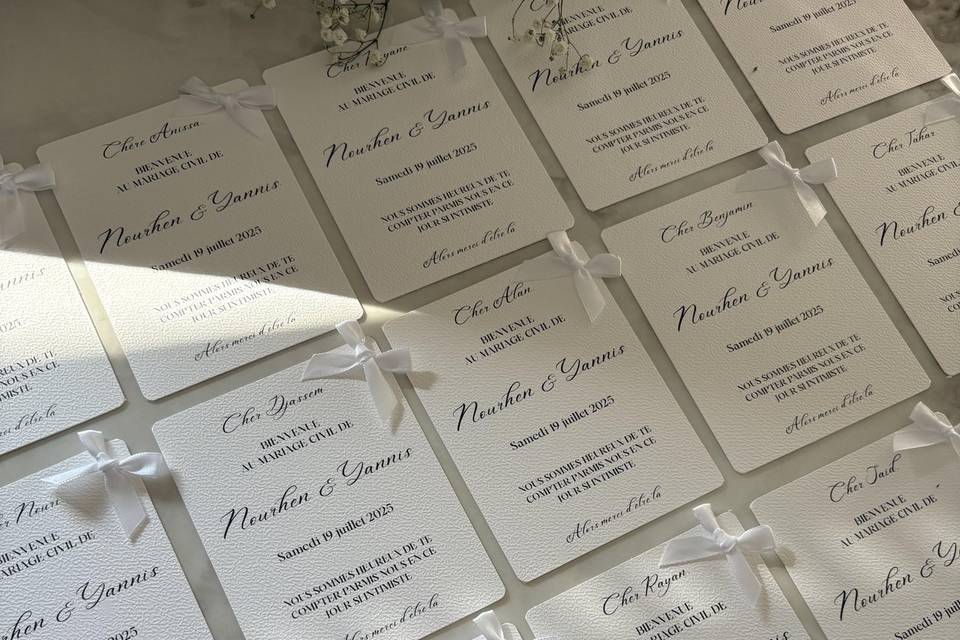 Chère Anissa
BIENVENUE
AU MARIAGE CIVIL DE
Nourhen & Yannis
Samedi 19 juillet 2025
NOUS SOMMES HEUREUX DE TE
COMPTER PARMIS NOUS EN CE
JOUR SI INTIMISTE
Alors merci d'être là
Cher
BIENVENUE
AU MARIAGE CIVIL DE
Nourhen & Yannis
Samedi 19 juillet 2025
NOUS SOMMES HEUREUX DE TE
COMPTER PARMIS NOUS EN CE
JOUR SI INTIMISTE
Alors merci d'être là
AU MARIAGE CIVIL DE
Nourhen & Yannis
Samedi 19 juillet 2025
NOUS SOMMES HEUREUX DE TE
COMPTER PARMIS NOUS EN CE
JOUR SI INTIMISTE
Alors merci d'être là
Samedi 19 juillet 2025
NOUS SOMMES HEUREUX DE TE
COMPTER PARMIS NOUS EN CE
JOUR SI INTIMISTE
Alors merci d'être là
2025
HEUREUX DE TE
NOUS EN CE
INTIMISTE
merci d'être là
Cher Djassem
BIENVENUE
AU MARIAGE CIVIL DE
Nourhen & Yannis
Samedi 19 juillet 2025
NOUS SOMMES HEUREUX DE TE
COMPTER PARMIS NOUS EN CE
JOUR SI INTIMISTE
Alors merci d'être là
Cher Alan
BIENVENUE
AU MARIAGE CIVIL DE
Nourhen & Yannis
Samedi 19 juillet 2025
NOUS SOMMES HEUREUX DE TE
COMPTER PARMIS NOUS EN CE
JOUR SI INTIMISTE
Alors merci d'être là
Cher Benjamin
BIENVENUE
AU MARIAGE CIVIL DE
Nourhen & Yannis
Samedi 19 juillet 2025
NOUS SOMMES HEUREUX DE TE
COMPTER PARMIS NOUS EN CE
JOUR SI INTIMISTE
Alors merci d'être là
Cher Tahar
BIENVENUE
AU MARIAGE
Nourhen &
Samedi
NOUS
COMPTER
BIENVENUE
MARIAGE CIVIL DE
& Yannis
2025
Cher Rayan
BIENVENUE
AU MARIAGE CIVIL DE
Cher Jaid
BIENVENUE
AU MARIAGE CIVIL DE
Nourhen &
Samedi 19